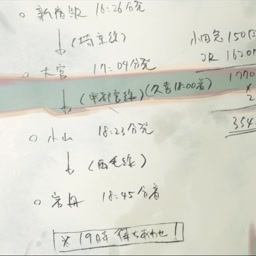 ○ 新宿駅 16:26分発
↓ (埼京線)
○ 大宮 17:09分発
↓ (宇都宮線)(久喜18:00着)
○ 小山 18:23分発
↓ (両毛線)
○ 岩舟 18:45分着
※19時
小田急 150
JR 1620
1770
2
354